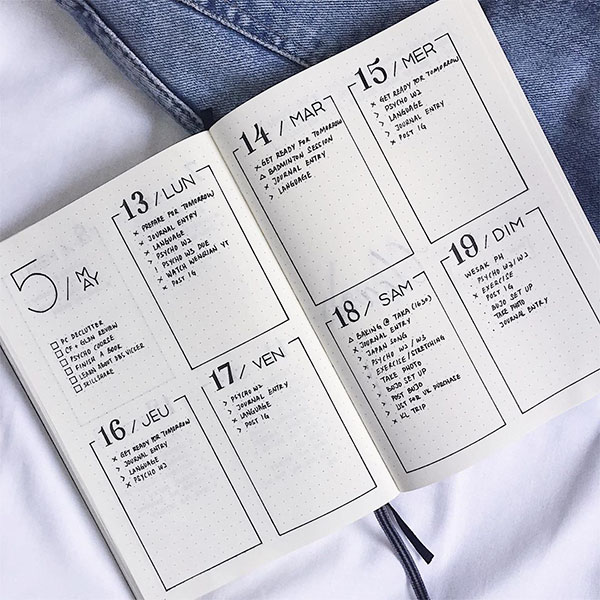 5 / MAY
□ PC DECLUTTER
□ CF + GLAM REVIEW
□ PSYCHO COURSE
□ FINISH A BOOK
□ LEARN ABOUT DBS VICKER
□ SKILLSHARE
13 / LUN
× PREPARE FOR TOMORROW
× JOURNAL ENTRY
× LANGUAGE
> PSYCHO W2
! PSYCHO W3 DUE
× WATCH WENGIAN YT
× POST IG
14 / MAR
× GET READY FOR TOMORROW
△ BADMINTON SESSION
× JOURNAL ENTRY
> LANGUAGE
15 / MER
× GET READY FOR TOMORROW
> PSYCHO W2
> LANGUAGE
> JOURNAL ENTRY
× POST IG
16 / JEU
× GET READY FOR TOMORROW
> JOURNAL ENTRY
> LANGUAGE
× PSYCHO W2
17 / VEN
> PSYCHO W2
> JOURNAL ENTRY
× LANGUAGE
> POST IG
18 / SAM
△ BAKING @ TAKA (1630)
× JOURNAL ENTRY
> JAPAN SONG
> PSYCHO W2 / W3
> EXERCISE/STRETCHING
> TAKE PHOTO
> BUJO SET UP
> POST BUJO
> LIST FOR UK PURCHASE
× KL TRIP
19 / DIM
WESAK PH
> PSYCHO W2/W3
× EXERCISE
POST IG
BUJO SET UP
TAKE PHOTO
JOURNAL ENTRY